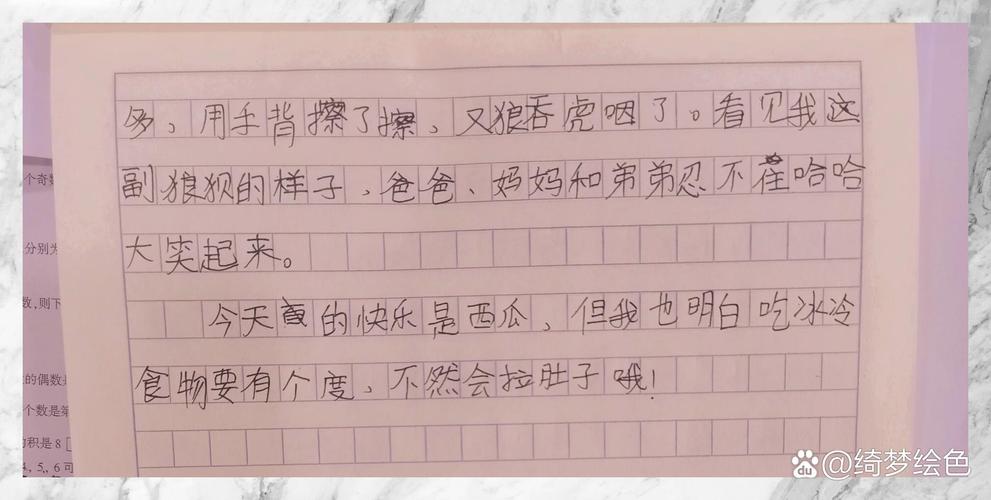 多，用手背擦了擦，又狼吞虎咽了。看见我这
副狼狈的样子，爸爸、妈妈和弟弟忍不住哈哈
大笑起来。
今天的快乐是西瓜，但我也明白吃冰冷
食物要有个度，不然会拉肚子哦！
个奇数
分别为
数,则下
的偶数是
个数是第
积是8
4,5,6可
Baidu @绮梦绘色